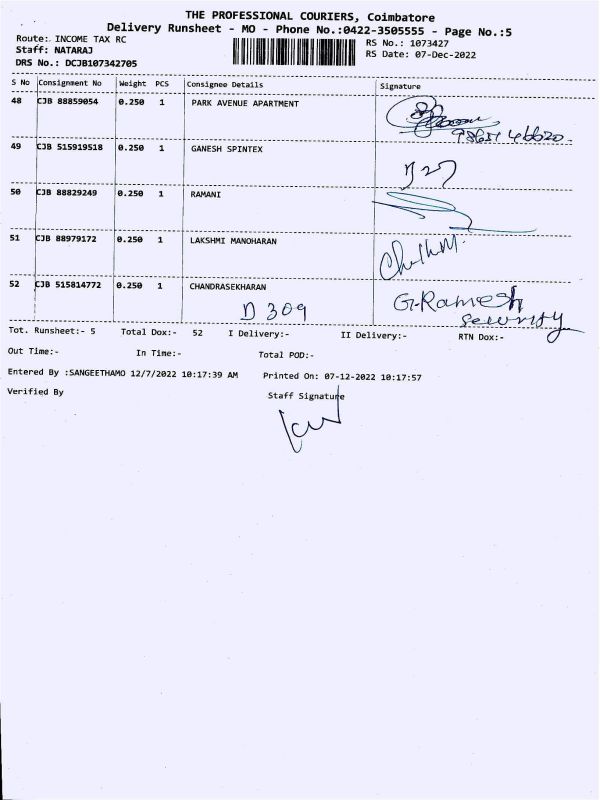 THE PROFESSIONAL COURIERS, Coimbatore
Delivery Runsheet - MO - Phone No.:0422-3505555 - Page No.:5
Route:. INCOME TAX RC RS No.: 1073427
Staff: NATARAJ RS Date: 07-Dec-2022
DRS No.: DCJB107342705
S No Consignment No Weight PCS Consignee Details Signature
48 CJB 88859054 0.250 1 PARK AVENUE APARTMENT
49 CJB 515919518 0.250 1 GANESH SPINTEX
50 CJB 88829249 0.250 1 RAMANI
51 CJB 88979172 0.250 1 LAKSHMI MANOHARAN
52 CJB 515814772 0.250 1 CHANDRASEKHARAN
D 309 G.Ramesh
Security
Tot. Runsheet:- 5 Total Dox:- 52 I Delivery:- II Delivery:- RTN Dox:-
Out Time:- In Time:- Total POD:-
Entered By :SANGEETHAMO 12/7/2022 10:17:39 AM Printed On: 07-12-2022 10:17:57
Verified By Staff Signature